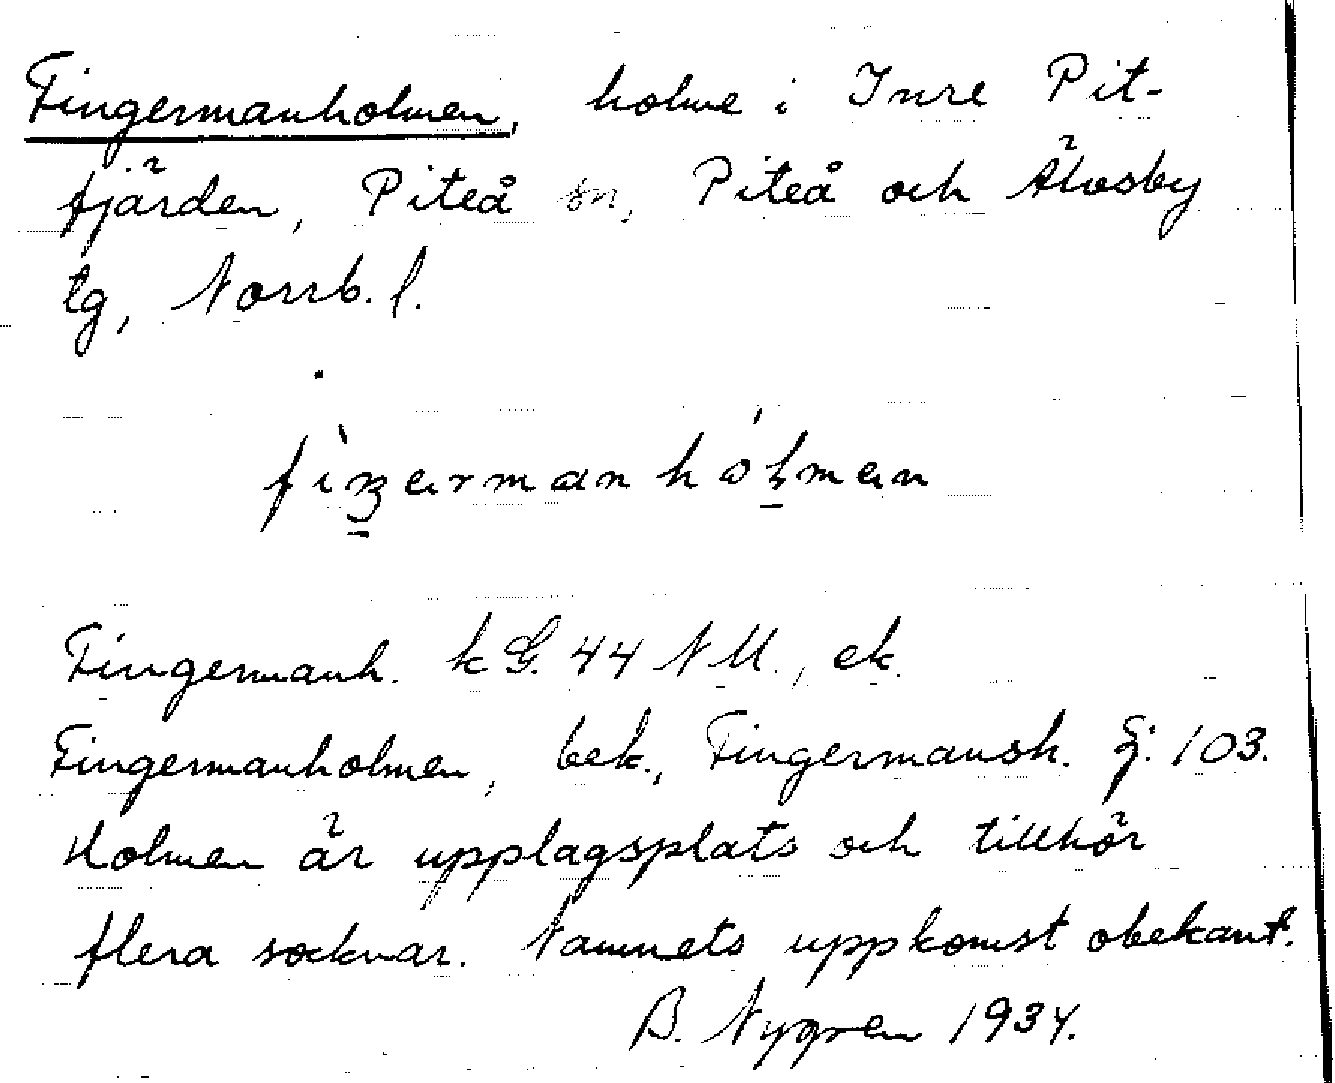 Fingermanholmen, holme i Inre Pit-
fjärden, Piteå sn, Piteå och Älvsby
tg, Norrb. l.
Fingermanh. k G. 44 NU., ek.
Fingermanholmen, bek., Fingermansh. Gj: 103.
Holmen är upplagsplats och tillhör
flera socknar. Namnets uppkomst obekant.
B. Nygren 1934.